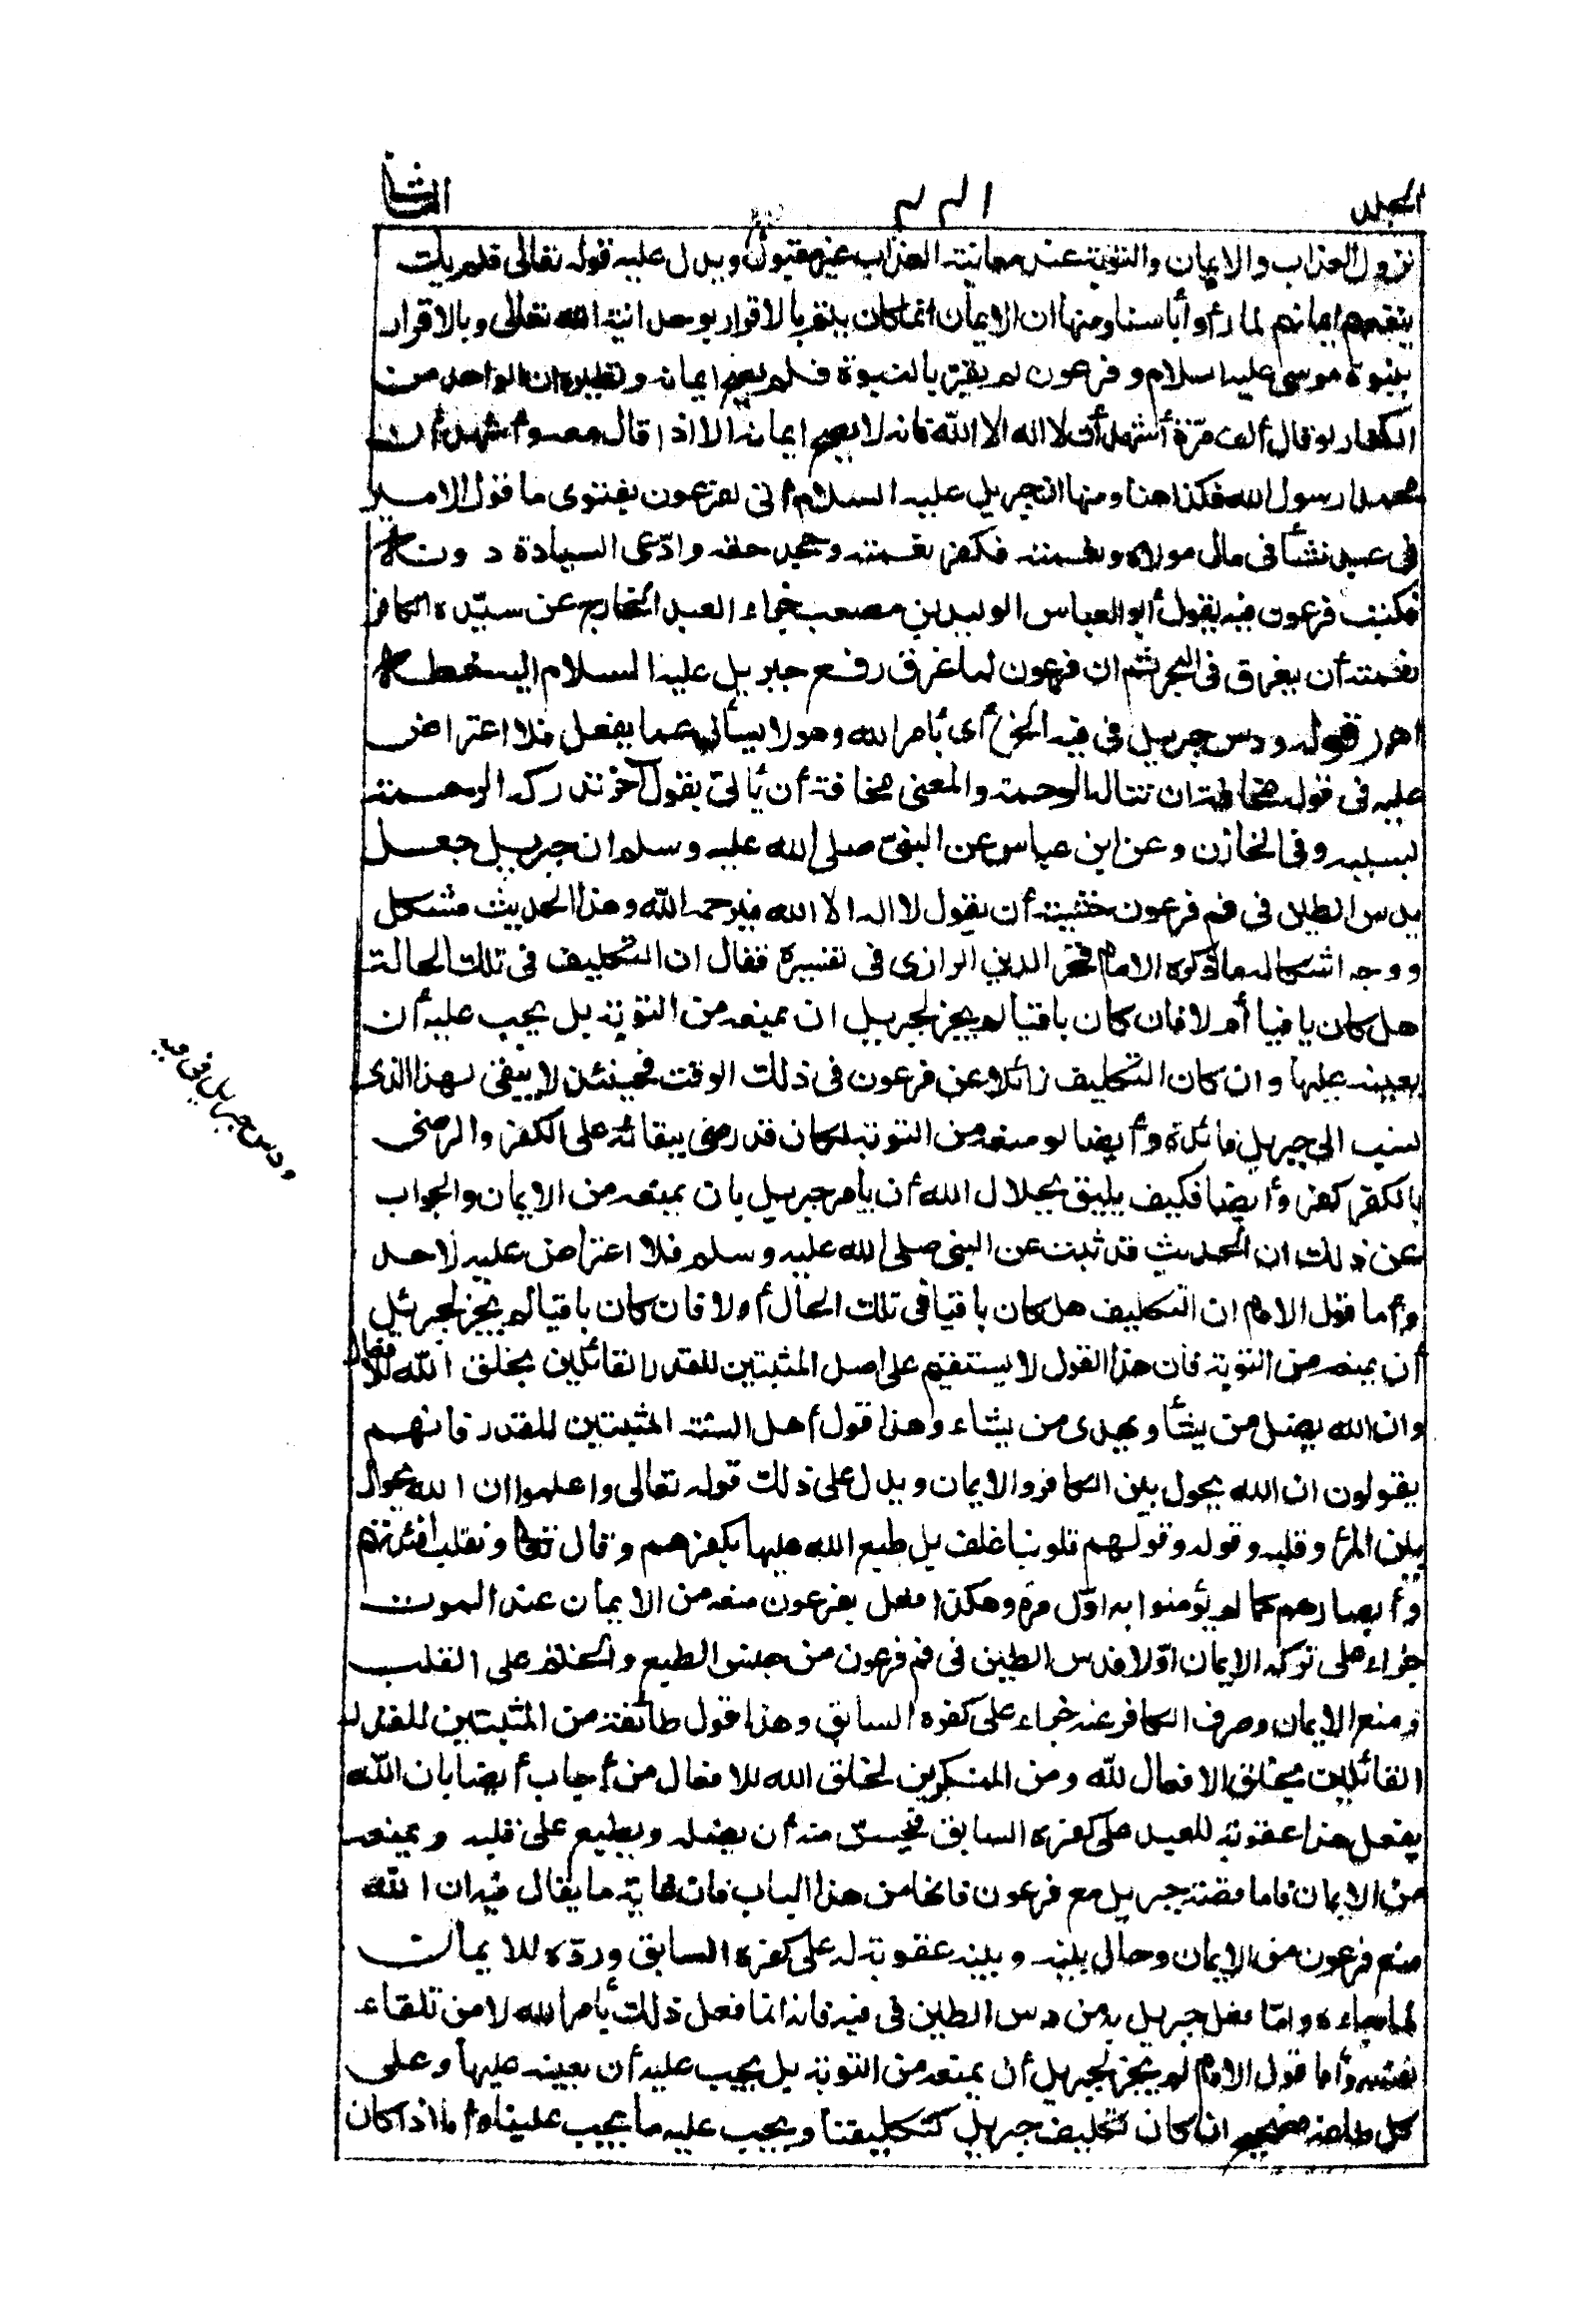 المجلد
الثانى
نزول العذاب والايمان والتوبة عند معاينة العذاب غير مقبول ويدل عليه قوله تعالى فلم يك
ينفعهم ايمانهم لما رأوا بأسنا ومنها ان الايمان انما كان يتم بالاقرار بوحدانية الله تعالى وبالاقرار
بنبوة موسى عليه السلام وفرعون لم يقر بالنبوة فلم يصح ايمانه ونظيره ان الواحد من
الكفار لو قال ألف مرّة أشهد أن لا اله الا الله فانه لا يصح ايمانه الا اذا قال معه وأشهد أن
محمدا رسول الله فكذا هنا ومنها ان جبريل عليه السلام أتى لفرعون بفتوى ما قول الامير
فى عبد نشأ فى مال مولاه ونعمته فكفر نعمته وجحد حقه وادّعى السيادة دونه
فكتب فرعون فيه يقول أبو العباس الوليد بن مصعب جزاء العبد الخارج عن سيّده الكافر
نعمته أن يغرق فى البحر ثم ان فرعون لما غرق رفع جبريل عليه السلام اليه خطه
اهـ قوله ودس جبريل فى فيه الخ أى بأمر الله وهو لا يسأل عما يفعل فلا اعتراض
عليه فى قوله مخافة ان تناله الرحمة والمعنى مخافة أن يأتى بقول آخر تدركه الرحمة
بسببه وفى الخازن وعن ابن عباس عن النبىّ صلى الله عليه وسلم ان جبريل جعل
يدس الطين فى فم فرعون خشية أن يقول لا اله الا الله فيرحمه الله وهذا الحديث مشكل
ووجه اشكاله ما ذكره الامام فخر الدين الرازى فى تفسيره فقال ان التكليف فى تلك الحالة
هل كان باقيا أم لا فان كان باقيا لم يجز لجبريل ان يمنعه من التوبة بل يجب عليه أن
يعينه عليها وان كان التكليف زائلا عن فرعون فى ذلك الوقت فحينئذ لا يبقى لهذا الذى
نسب الى جبريل فائدة وأيضا لو منعه من التوبة لكان قد رضى ببقائه على الكفر والرضى
بالكفر كفر وأيضا فكيف يليق بجلال الله أن يأمر جبريل بان يمنعه من الايمان والجواب
عن ذلك ان الحديث قد ثبت عن النبى صلى الله عليه وسلم فلا اعتراض عليه لاحد
وأما قول الامام ان التكليف هل كان باقيا فى تلك الحال أولا فان كان باقيا لم يجز لجبرئيل
أن يمنعه من التوبة فان هذا القول لا يستقيم على اصل المثبتين للقدر القائلين بخلق الله للافعال
وان الله يضل من يشأ ويهدى من يشاء وهذا قول أهل السنة المثبتين للقدر فانهم
يقولون ان الله يحول بين الكافر والايمان ويدل على ذلك قوله تعالى واعلموا ان الله يحول
بين المرأ وقلبه وقوله وقولهم قلوبنا غلف بل طبع الله عليها بكفرهم وقال تعا ونقلب افئدتهم
وأبصارهم كما لم يؤمنوا به اوّل مرة وهكذا فعل بفرعون منعه من الايمان عند الموت
جزاء على تركه الايمان اوّلا فدس الطين فى فم فرعون من جنس الطبع والختم على القلب
ومنع الايمان وصرف الكافر عنه جزاء على كفره السابق وهذا قول طائفة من المثبتين للقدر
القائلين بخلق الافعال لله ومن المنكرين لخلق الله للافعال من أجاب أيضا بان الله
يفعل هذا عقوبة للعبد على كفره السابق فيحسن منه أن يضله ويطبع على قلبه ويمنعه
من الايمان فاما قصة جبريل مع فرعون فانها من هذا الباب فان غاية ما يقال فيه ان الله
منع فرعون من الايمان وحال بينه وبينه عقوبة له على كفره السابق وردّه للايمان
لما جاءه وامّا فعل جبريل به من دس الطين فى فيه فانه انما فعل ذلك بأمر الله لا من تلقاء
نفسه وأما قول الامام لم يجز لجبريل أن يمنعه من التوبة بل يجب عليه أن يعينه عليها وعلى
كل طاعة فصحيح ان كان تكليف جبريل كتكليفنا ويجب عليه ما يجب علينا وأما اذا كان
ودس جبريل فى فيه